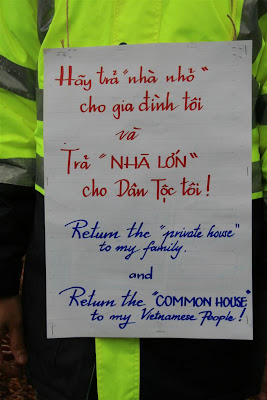 Hãy trả "nhà nhỏ"
cho gia đình tôi
và
Trả "NHÀ LỚN"
cho Dân Tộc tôi!
Return the "private house"
to my family.
and
Return the "COMMON HOUSE"
to my Vietnamese People!